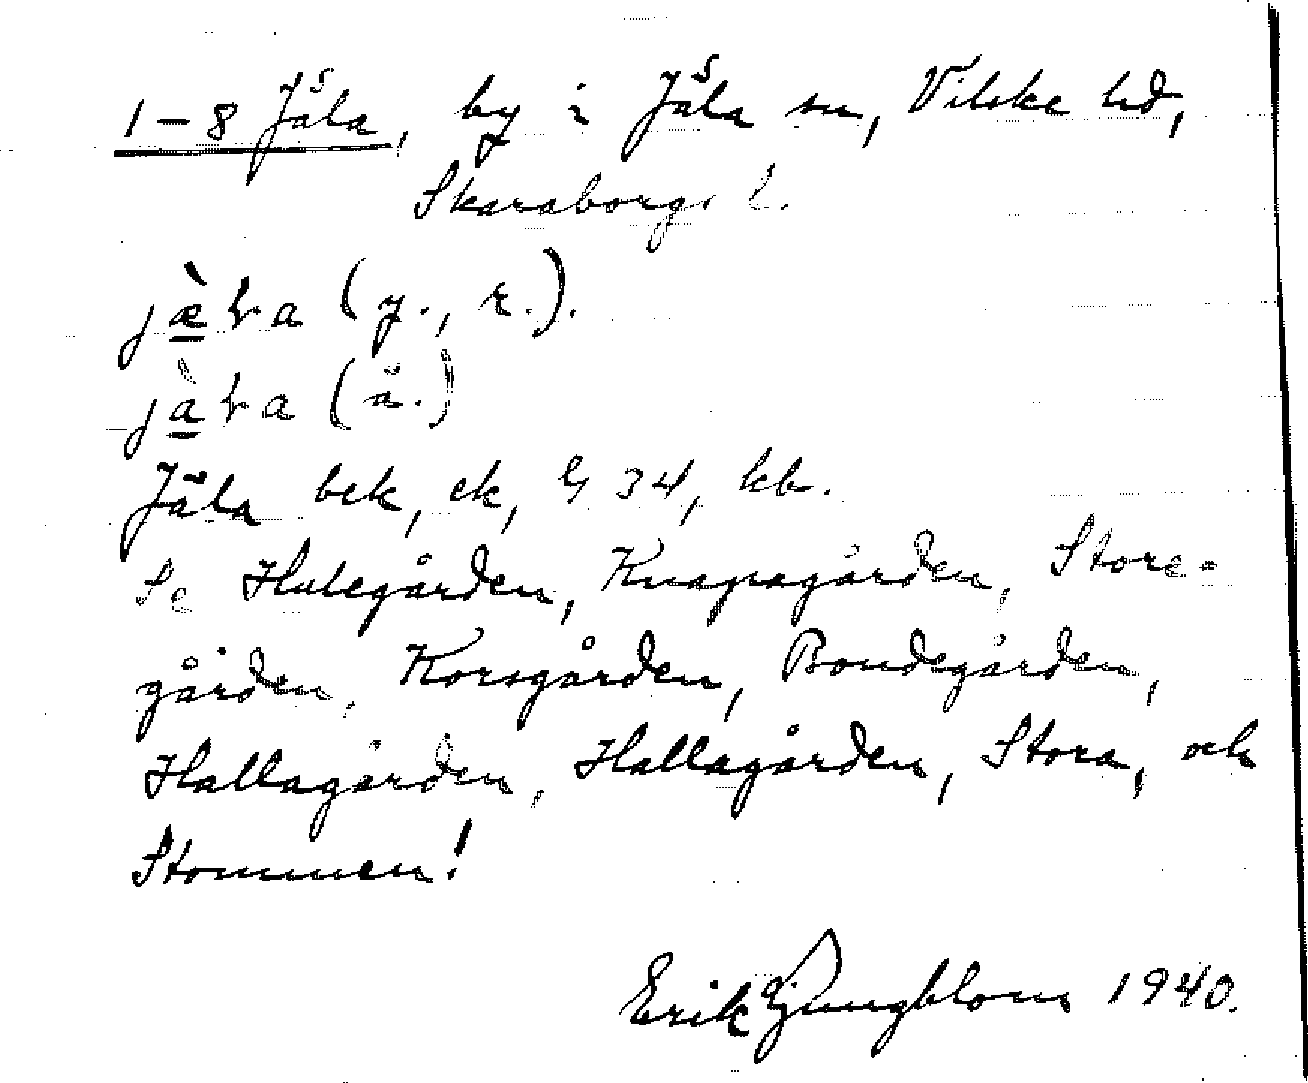 1–8 Jäla, by i Jäla sn, Vilske hd,
Skaraborgs l.
jæ̀ɽa (y., r.).
jàɽa (ä.)
Jäla bek, ek, G 34, kb.
Se Hulegården, Knapagården, Store-
gården, Korsgården, Bondegården,
Hallagården, Hallagården, Stora, och
Stommen!
Erik Ljungblom 1940.